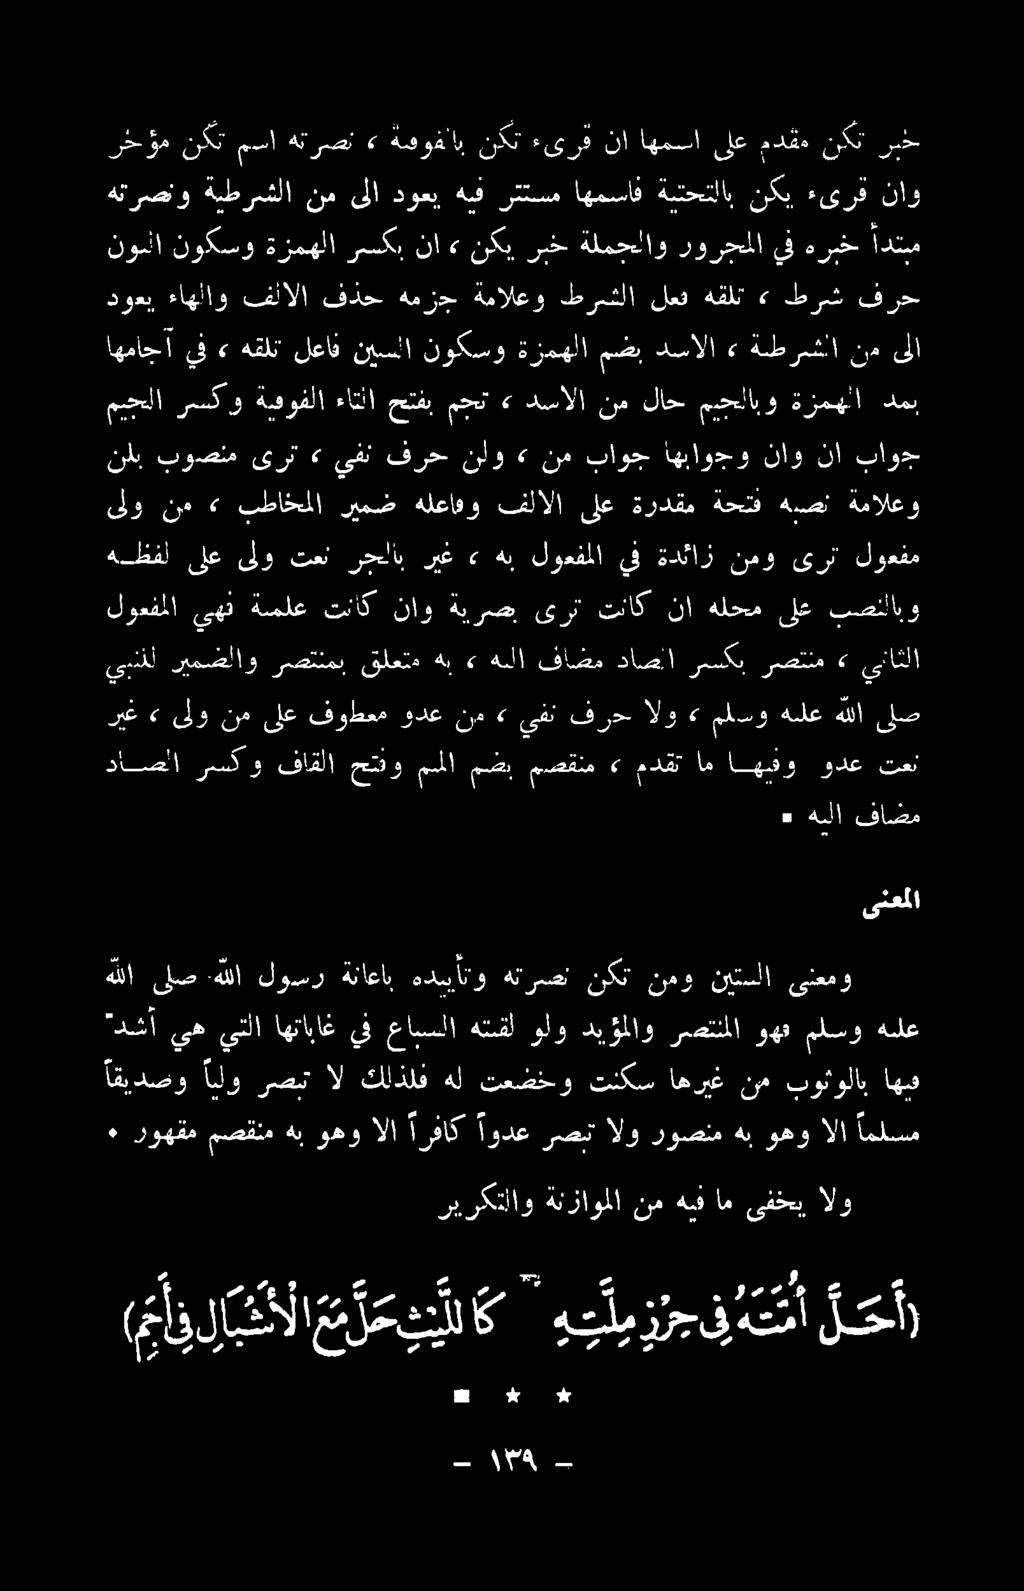 خبر تكن مقدم على اسمها ان قرىء تكن بالفوقية ، نصرته اسم تكن مؤخر
وان قرىء يكن بالتحتية فاسمها مستتر فيه يعود الى من الشرطية ونصرته
مبتدأ خبره في المجرور والجملة خبر يكن ، ان بكسر الهمزة وسكون النون
حرف شرط ، تلقه فعل الشرط وعلامة جزمه حذف الالف والهاء يعود
الى من الشرطية ، الاسد بضم الهمزة وسكون السين فاعل تلقه ، في آجامها
بمد الهمزة وبالجيم حال من الاسد ، تجم بفتح التاء الفوقية وكسر الجيم
جواب ان وان وجوابها جواب من ، ولن حرف نفي ، ترى منصوب بلن
وعلامة نصبه فتحة مقدرة على الالف وفاعله ضمير المخاطب ، من ولى
مفعول ترى ومن زائدة في المفعول به ، غير بالجر نعت ولى على لفظـه
وبالنصب على محله ان كانت ترى بصرية وان كانت علمية فهي المفعول
الثاني ، منتصر بكسر الصاد مضاف اليه ، به متعلق بمنتصر والضمير للنبي
صلى الله عليه وسلم ، ولا حرف نفي ، من عدو معطوف على من ولى ، غير
نعت عدو وفيهـا ما تقدم ، منقصم بضم الميم وفتح القاف وكسر الصـاد
مضاف اليه .
المعنى
ومعنى البيتين ومن تكن نصرته وتأييده باعانة رسول الله صلى الله
عليه وسلم فهو المنتصر والمؤيد ولو لقيته السباع في غاباتها التي هي أشد
فيها بالوثوب من غيرها سكنت وخضعت له فلذلك لا تبصر ولياً وصديقاً
مسلماً الا وهو به منصور ولا تبصر عدواً كافراً الا وهو به منقصم مقهور ٠
ولا يخفى ما فيه من الموازنة والتكرير
(أَحَلَّ أُمَّتَهُ فِي حِرْزِ مِلَّتِهِ كَاللَّيْثِ حَلَّ مَعَ الْأَشْبَالِ فِي أَجَمِ)
★ ★ ■
– ١٣٩ –